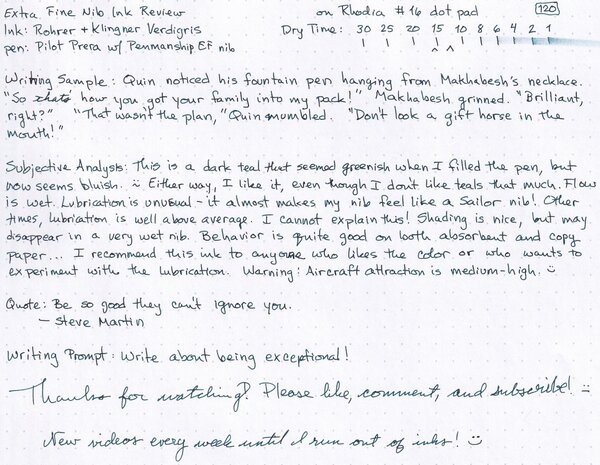 Extra Fine Nib Ink Review on Rhodia #16 dot pad 120
Ink: Rohrer + Klingner Verdigris Dry Time: 30 25 20 15 10 8 6 4 2 1
pen: Pilot Prera w/ Penmanship EF nib
Writing Sample: Quin noticed his fountain pen hanging from Makhabesh's necklace.
"So that's how you got your family into my pack!" Makhabesh grinned. "Brilliant,
right?" "That wasn't the plan," Quin mumbled. "Don't look a gift horse in the
mouth!"
Subjective Analysis: This is a dark teal that seemed greenish when I filled the pen, but
now seems bluish. :) Either way, I like it, even though I don't like teals that much. Flow
is wet. Lubrication is unusual - it almost makes my nib feel like a Sailor nib! Other
times, lubrication is well above average. I cannot explain this! Shading is nice, but may
disappear in a very wet nib. Behavior is quite good on both absorbent and copy
paper... I recommend this ink to anyone who likes the color or who wants to
experiment with the lubrication. Warning: Aircraft attraction is medium-high. :)
Quote: Be so good they can't ignore you.
— Steve Martin
Writing Prompt: Write about being exceptional!
Thanks for watching! Please like, comment, and subscribe! :)
New videos every week until I run out of inks! :)